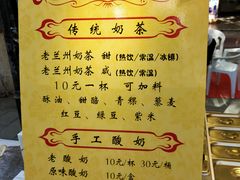 传统奶茶
老兰州奶茶 甜 (热饮/常温/冰镇)
老兰州奶茶 咸 (热饮/常温)
10元一杯 可加料
酥油、甜醅、青稞、藜麦
红豆、绿豆、紫米
手工酸奶
老酸奶 10元/杯 30元/桶
原味酸奶 10元/盒